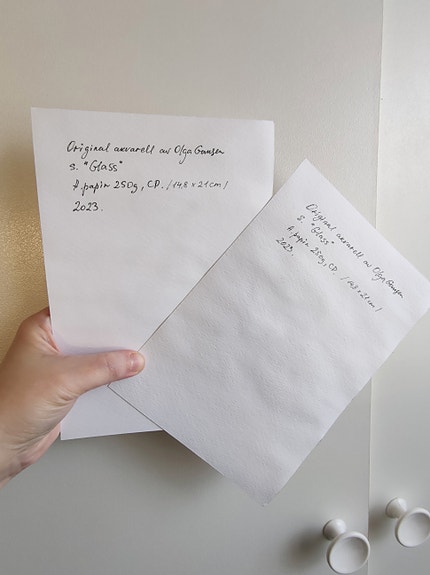 Original akvarell av Olga Gansen
s. "Glass"
A.papir 250g, CP. /14,8 x 21cm/
2023.
Original akvarell av Olga Gansen
s. "Glass"
A.papir 250g, CP. /14,8 x 21cm/
2023.